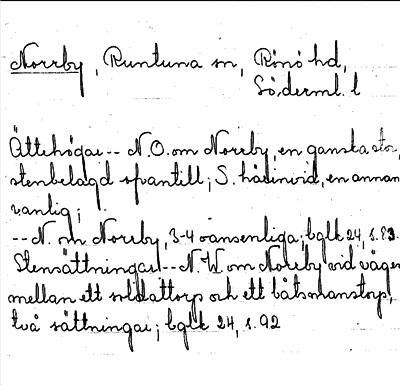 Norrby, Runtuna sn, Rönö hd,
Söderml. l
Ättehögar -- N.O. om Norrby, en ganska stor,
stenbelagd upantill; S. härinvid, en annan
vanlig;
-- N. om Norrby, 3-4 oansenliga; bglk 24, s. 83.
Stensättningar -- N.W om Norrby vid vägen
mellan ett soldattorp och ett båtsmanstorp,
två sättningar; bglk 24, s. 92